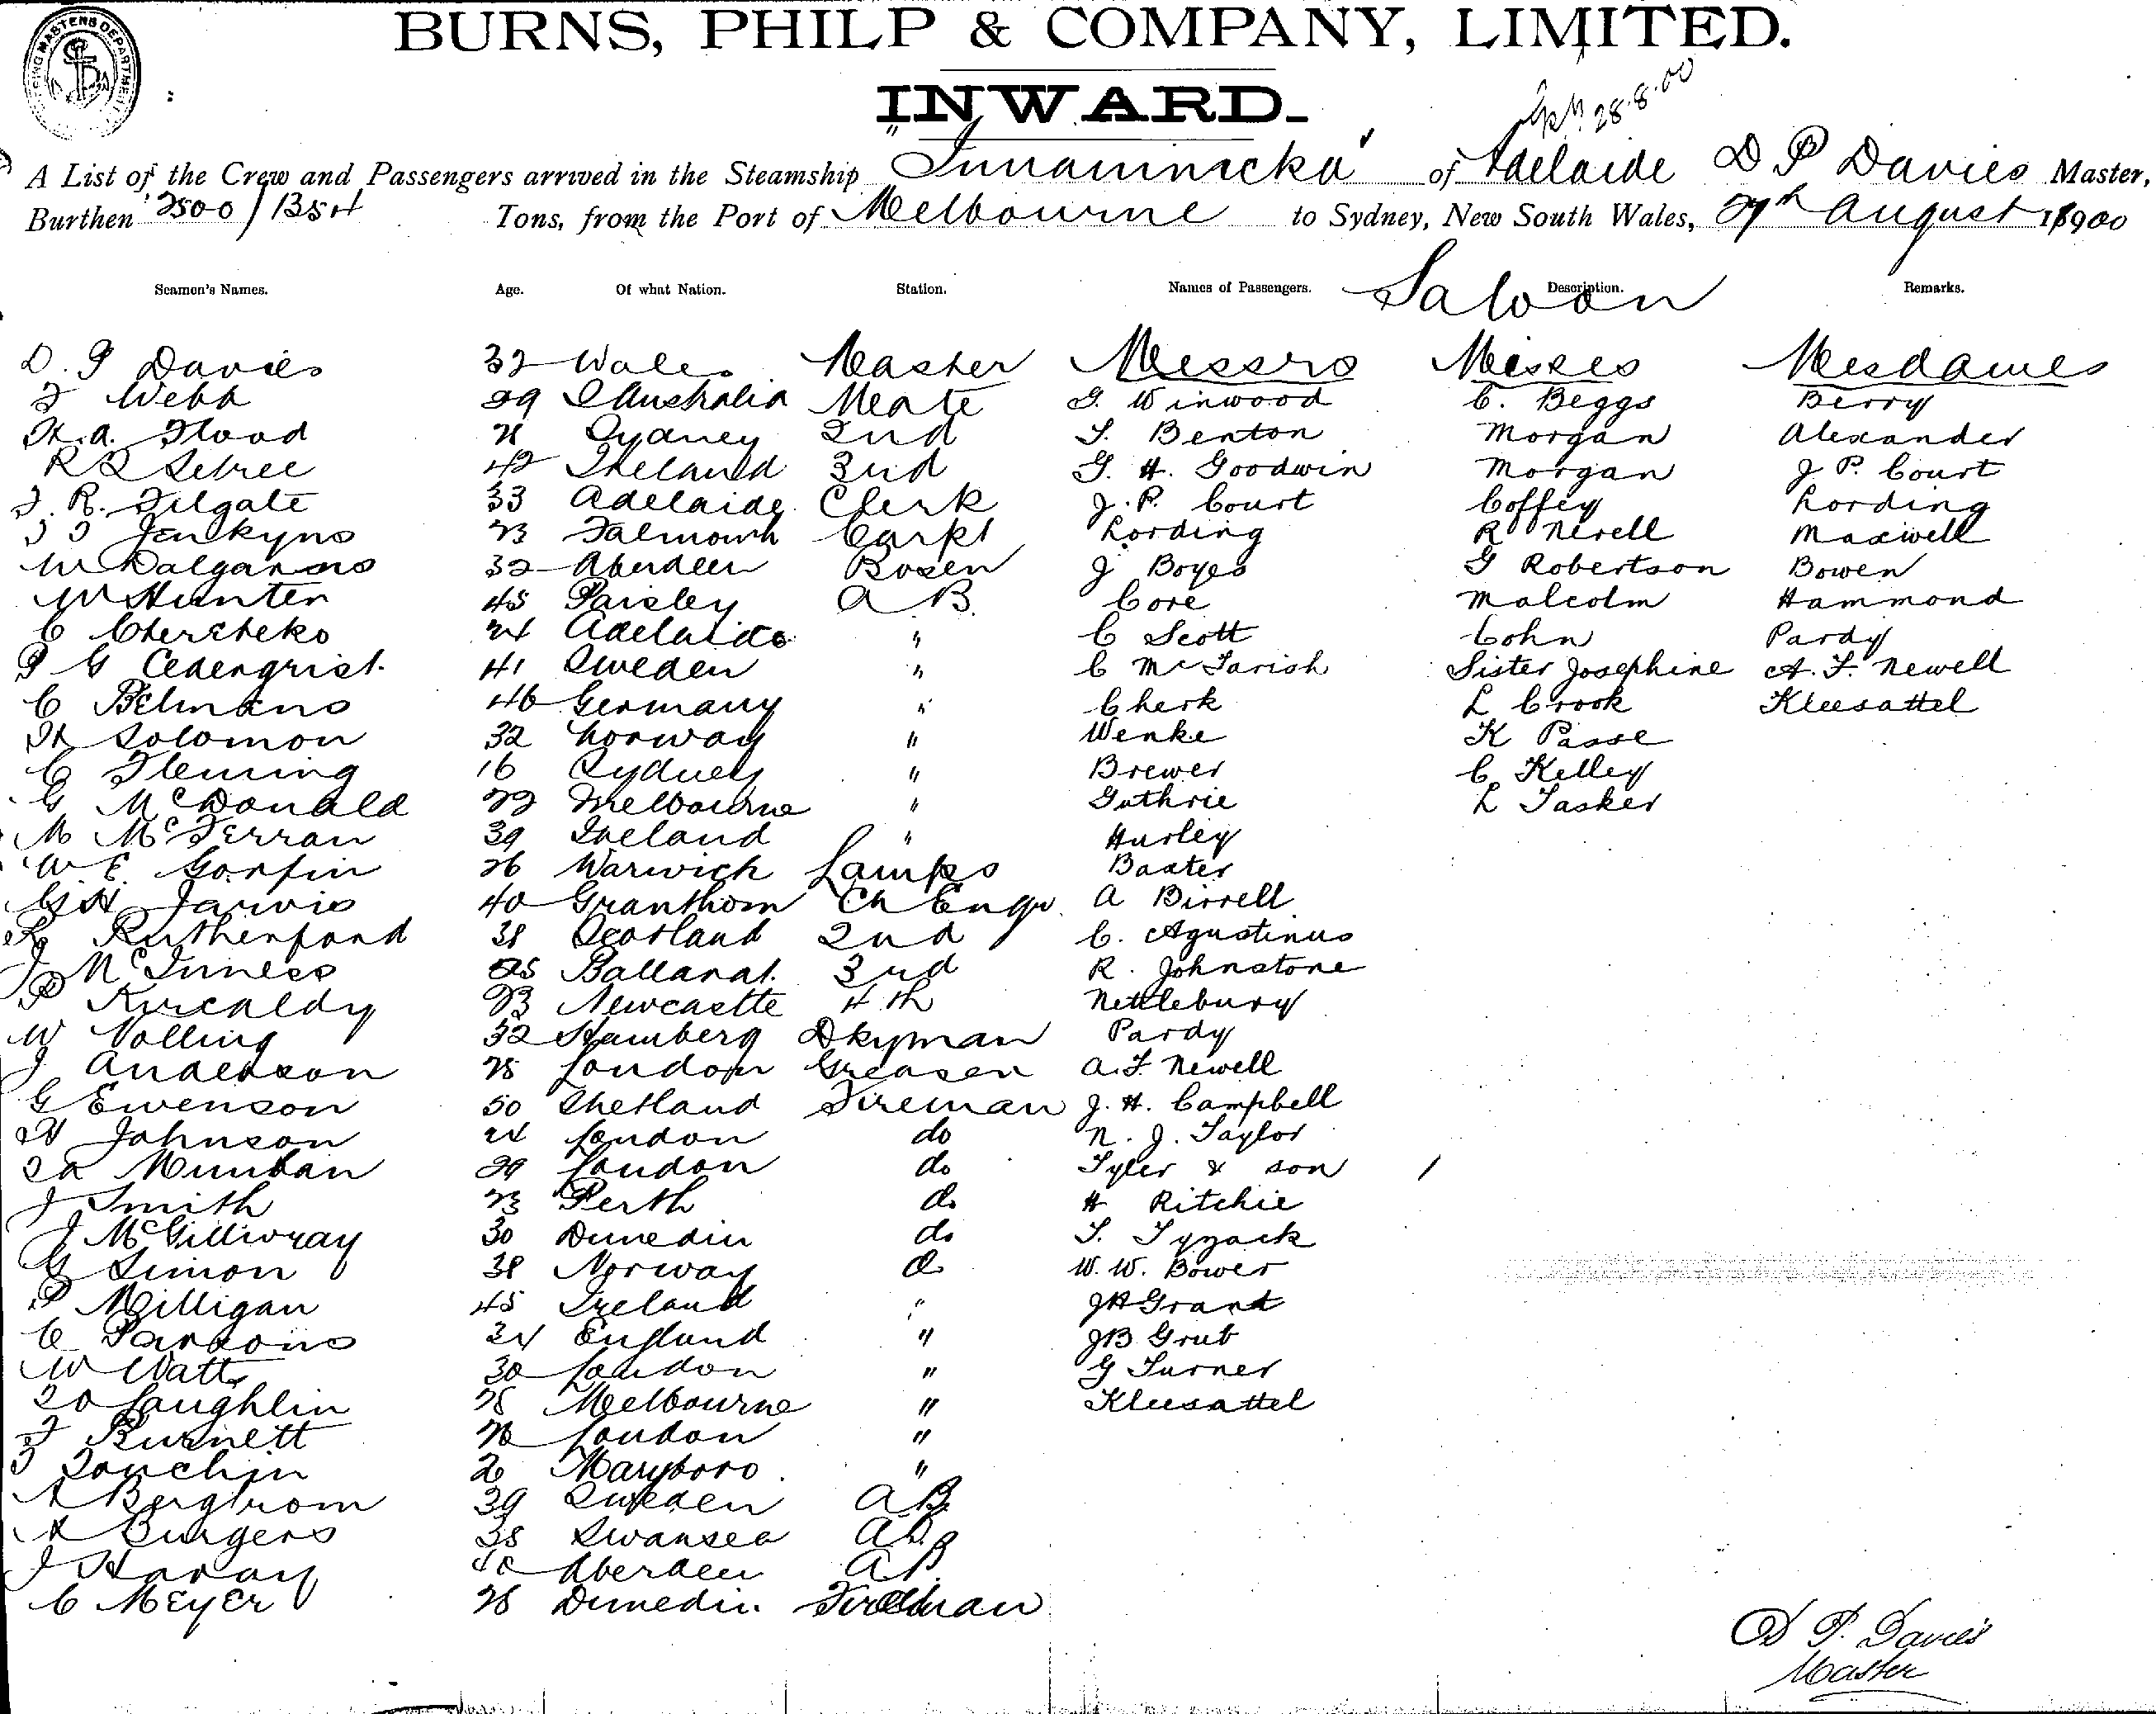 BURNS, PHILP & COMPANY, LIMITED.
INWARD.
28.8.00
A List of the Crew and Passengers arrived in the Steamship "Innamincka" of Adelaide D P Davies Master,
Burthen 2500/1354 Tons, from the Port of Melbourne to Sydney, New South Wales, 27th August 1900
Seamen's Names. Age. Of what Nation. Station. Names of Passengers. Description. Remarks.
Saloon
D. P Davies 32 Wales Master Messrs Misses Mesdames
F Webb 29 S Australia Mate G. Winwood C. Beggs Berry
H. A. Flood 21 Sydney 2nd S. Benton Morgan Alexander
42 Ireland 3rd G. H. Goodwin Morgan J P. Court
J. R. Filgate 33 Adelaide Clerk J. P. Court Coffey Lording
Jenkyns 23 Falmouth Carpt Lording R Nevell Maxwell
W Dalgarno 32 Aberdeen Bosen J Boyes G Robertson Bowen
W Hunter 45 Paisley A B. Core Malcolm Hammond
C 24 Adelaide " C Scott Cohn Pardy
P G Cedergrist. 41 Sweden " C McTarish Sister Josephine A. F. Newell
C 46 Germany " Cherk L Crook Kleesattel
H Solomon 32 Norway " Wenke K Passe
C Fleming 16 Sydney " Brewer C Kelley
G McDonald 22 Melbourne " Guthrie L Tasker
M McFerran 39 Ireland " Hurley
W E. Gorfin 26 Warwick Lamps Baxter
G H Jarvis 40 Granthom Ch Engr. A Birrell
R Rutherford 38 Scotland 2nd C. Agustinus
J McInness 25 Ballarat. 3rd R. Johnstone
P Kircaldy 23 Newcastle 4th Nettlebury
W Nolling 32 Hamberg Dkyman Pardy
J Anderson 28 London Greaser A. F. Newell
G Ewenson 50 Shetland Fireman J. H. Campbell
H Johnson 24 London do N. J. Taylor
29 London do Tyler & son /
J Smith 23 Perth do H Ritchie
J McGillivray 30 Dunedin do S. Tyzack
G Simon 38 Norway do W. W. Bower
P Milligan 45 Ireland " JH Grant
C Parsons 24 England " JB Grut
W Watt 30 London " G Turner
Laughlin 28 Melbourne " Kleesattel
F Burnett 26 London "
T Tonchin Maryboro "
A Bergtrom 39 Sweden A B.
A Burgers 38 Swansea A B
J Haray 40 Aberdeen A B.
C MEyEr 28 Dunedin Fireman
D P. Davies
Master